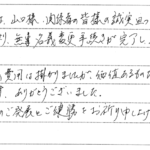 山口様、関係者の皆様の誠実
無事名義変更手続きが完了し
費用は掛かりましたが、価値あるもの
ありがとうございました。
のご発展とご健勝をお祈り申し上げ